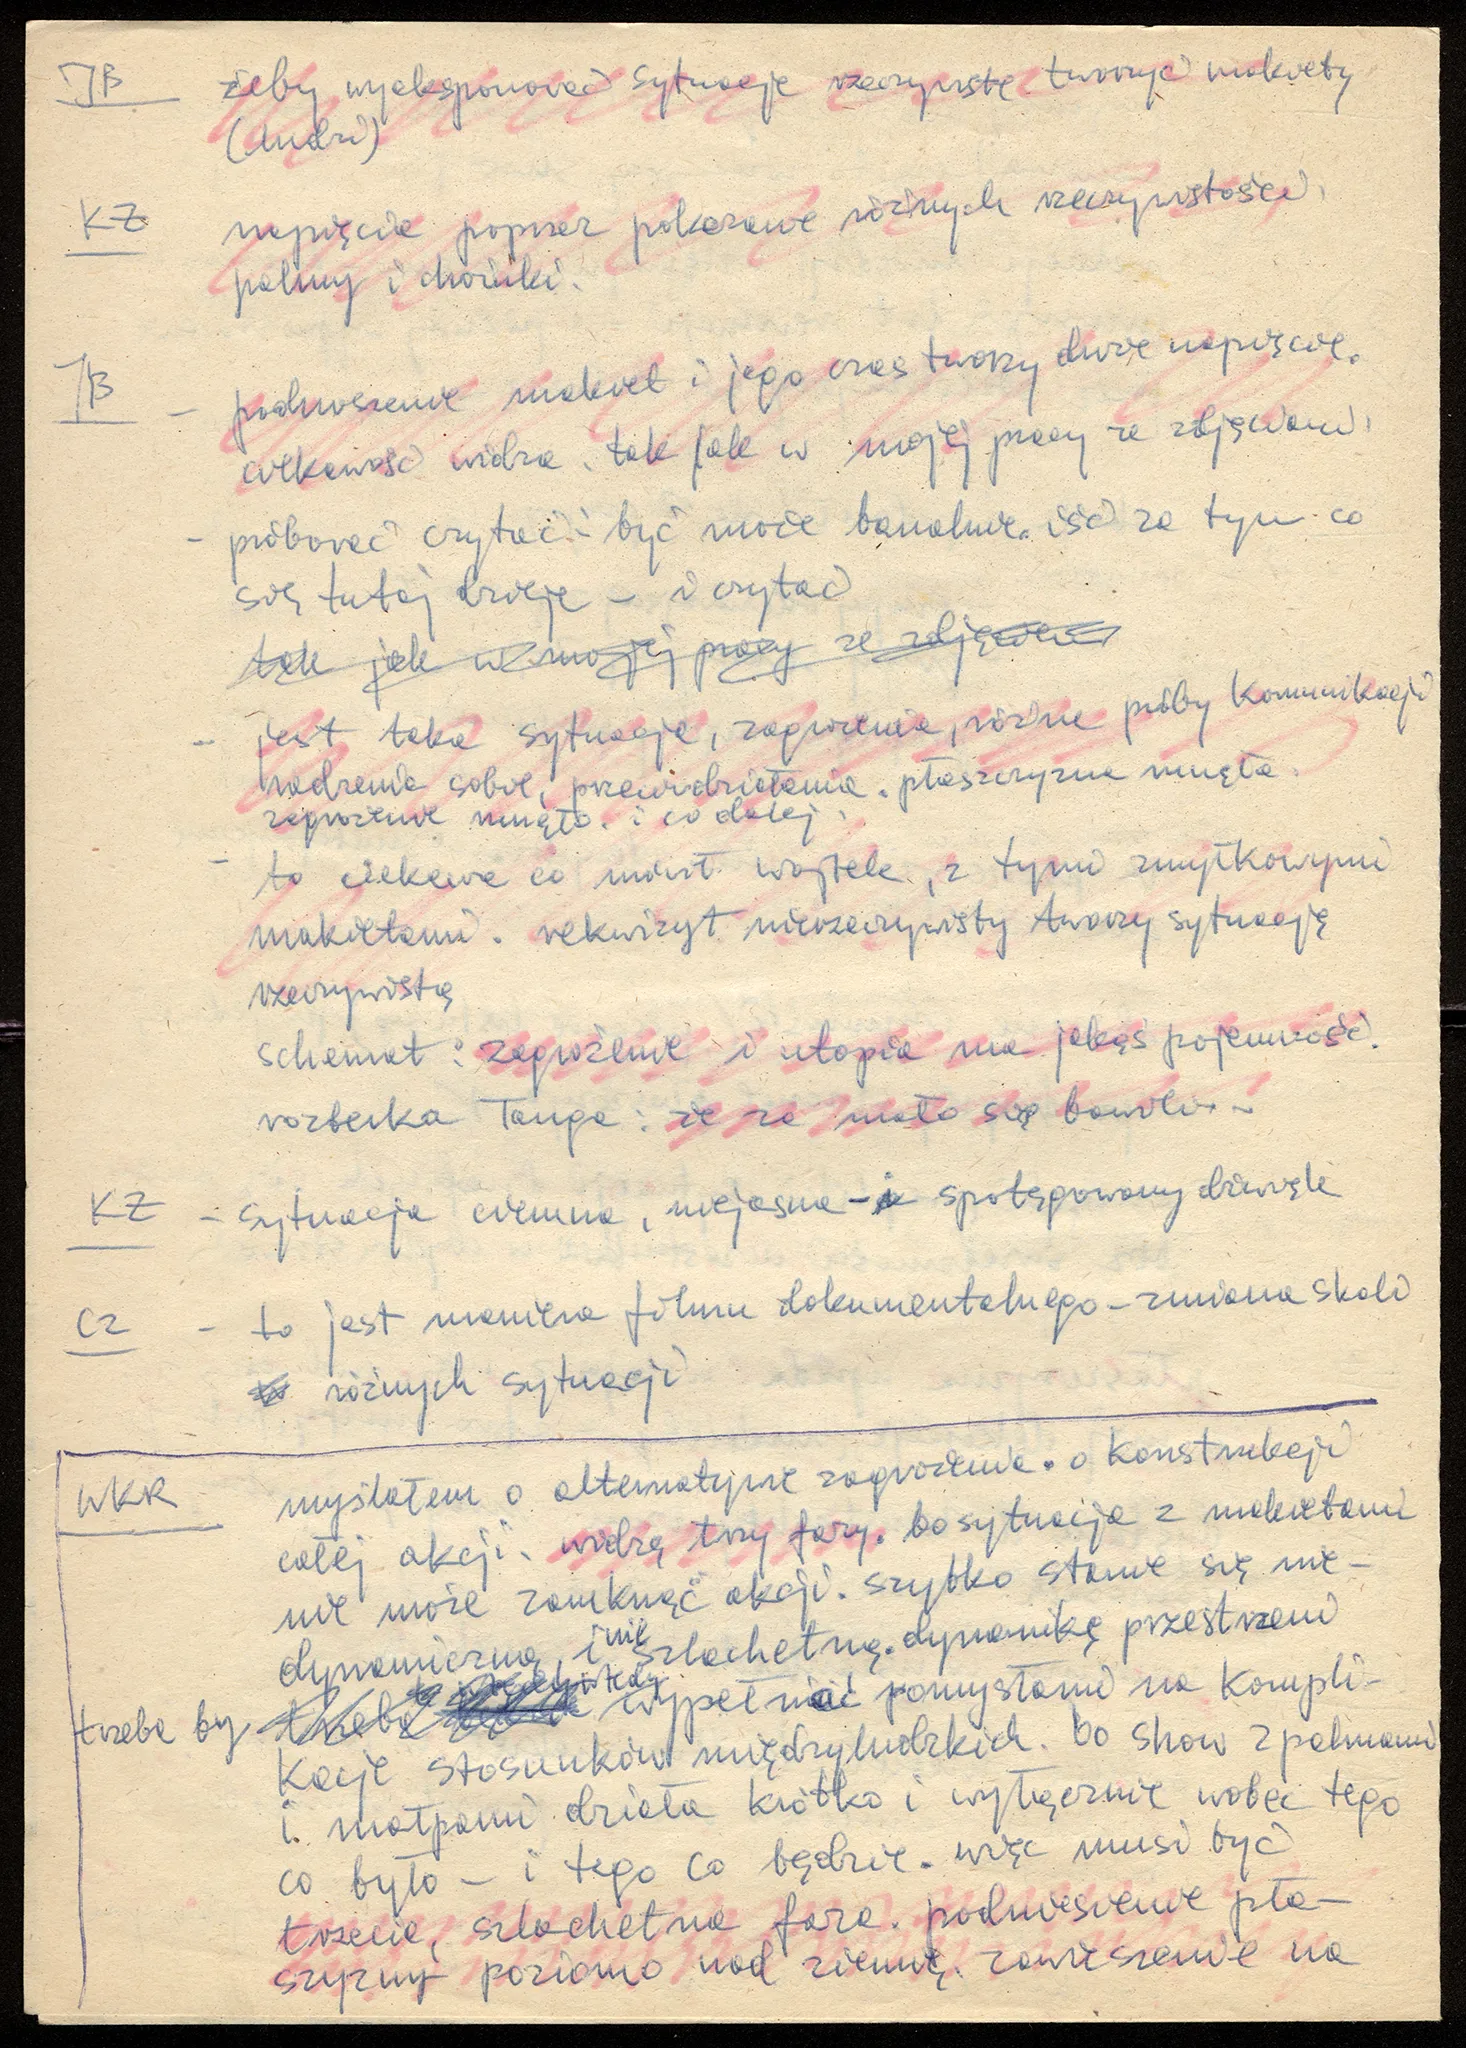 JB żeby wyeksponować sytuację rzeczywistą tworzyć makiety
(ludzi)
KZ napięcie poprzez pokazanie różnych rzeczywistości.
palmy i choinki.
JB - podnoszenie makiet i jego czas tworzy duże napięcie.
ciekawość widza. tak jak w mojej pracy ze zdjęciami.
- próbować czytać - być może banalnie. iść za tym co
się tutaj dzieje - i czytać
tak jak w mojej pracy ze zdjęciami
- jest taka sytuacja, zagrożenia, różne próby komunikacji
radzenia sobie, przeciwdziałania. płaszczyzna runęła.
zagrożenie runęło. i co dalej.
- to ciekawe co mówił wojtek, z tymi zmyłkowymi
makietami. rekwizyt nierzeczywisty tworzy sytuację
rzeczywistą
schemat: zagrożenie i utopia ma jakąś pojemność.
rozberka Tanga: że za mało się bawili..
KZ - sytuacja ciemna, niejasna - spotęgowany dźwięk
CZ - to jest maniera filmu dokumentalnego - zmiana skali
różnych sytuacji
WKR myślałem o alternatywie zagrożenia. o konstrukcji
całej akcji. widzę trzy fazy. bo sytuacja z makietami
nie może zamknąć akcji. szybko stanie się nie-
dynamiczną, i nie szlachetną. dynamikę przestrzeni
trzeba by trzeba wtedy wypełniać pomysłami na kompli-
kacje stosunków międzyludzkich. bo show z palmami
i małpami działa krótko i wyłącznie wobec tego
co było - i tego co będzie. więc musi być
trzecia, szlachetna faza. podniesienie pła-
szyzny poziomo nad ziemię. zawieszenie na